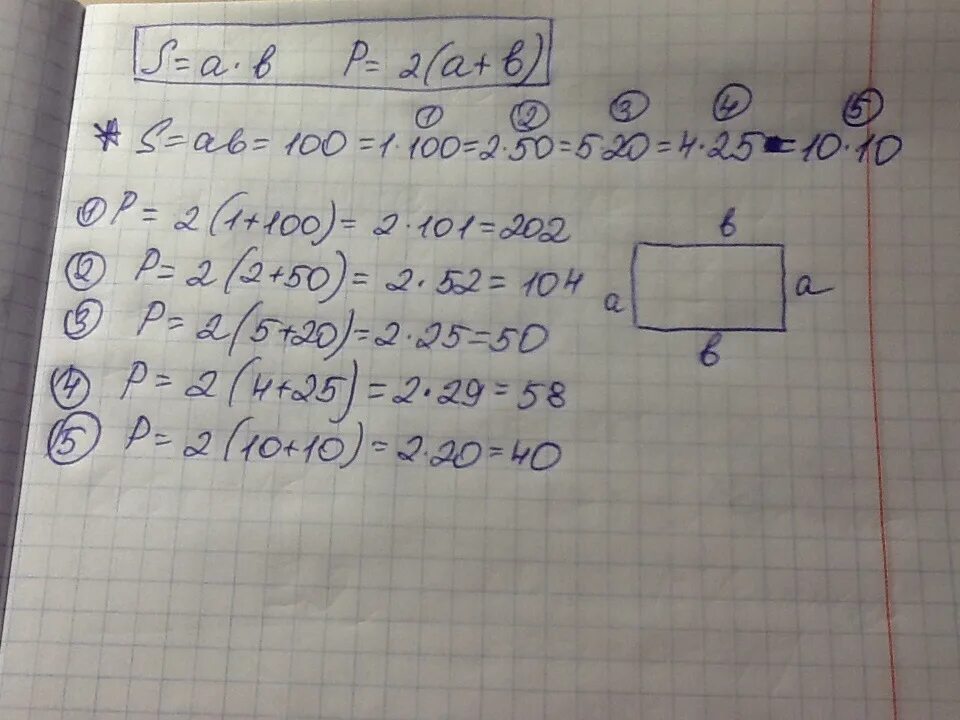 S = a · b   P = 2(a + b)
① ② ③ ④ ⑤
* S = ab = 100 = 1·100 = 2·50 = 5·20 = 4·25 = 10·10
① P = 2(1+100) = 2·101 = 202
② P = 2(2+50) = 2·52 = 104
③ P = 2(5+20) = 2·25 = 50
④ P = 2(4+25) = 2·29 = 58
⑤ P = 2(10+10) = 2·20 = 40
в
a a
в